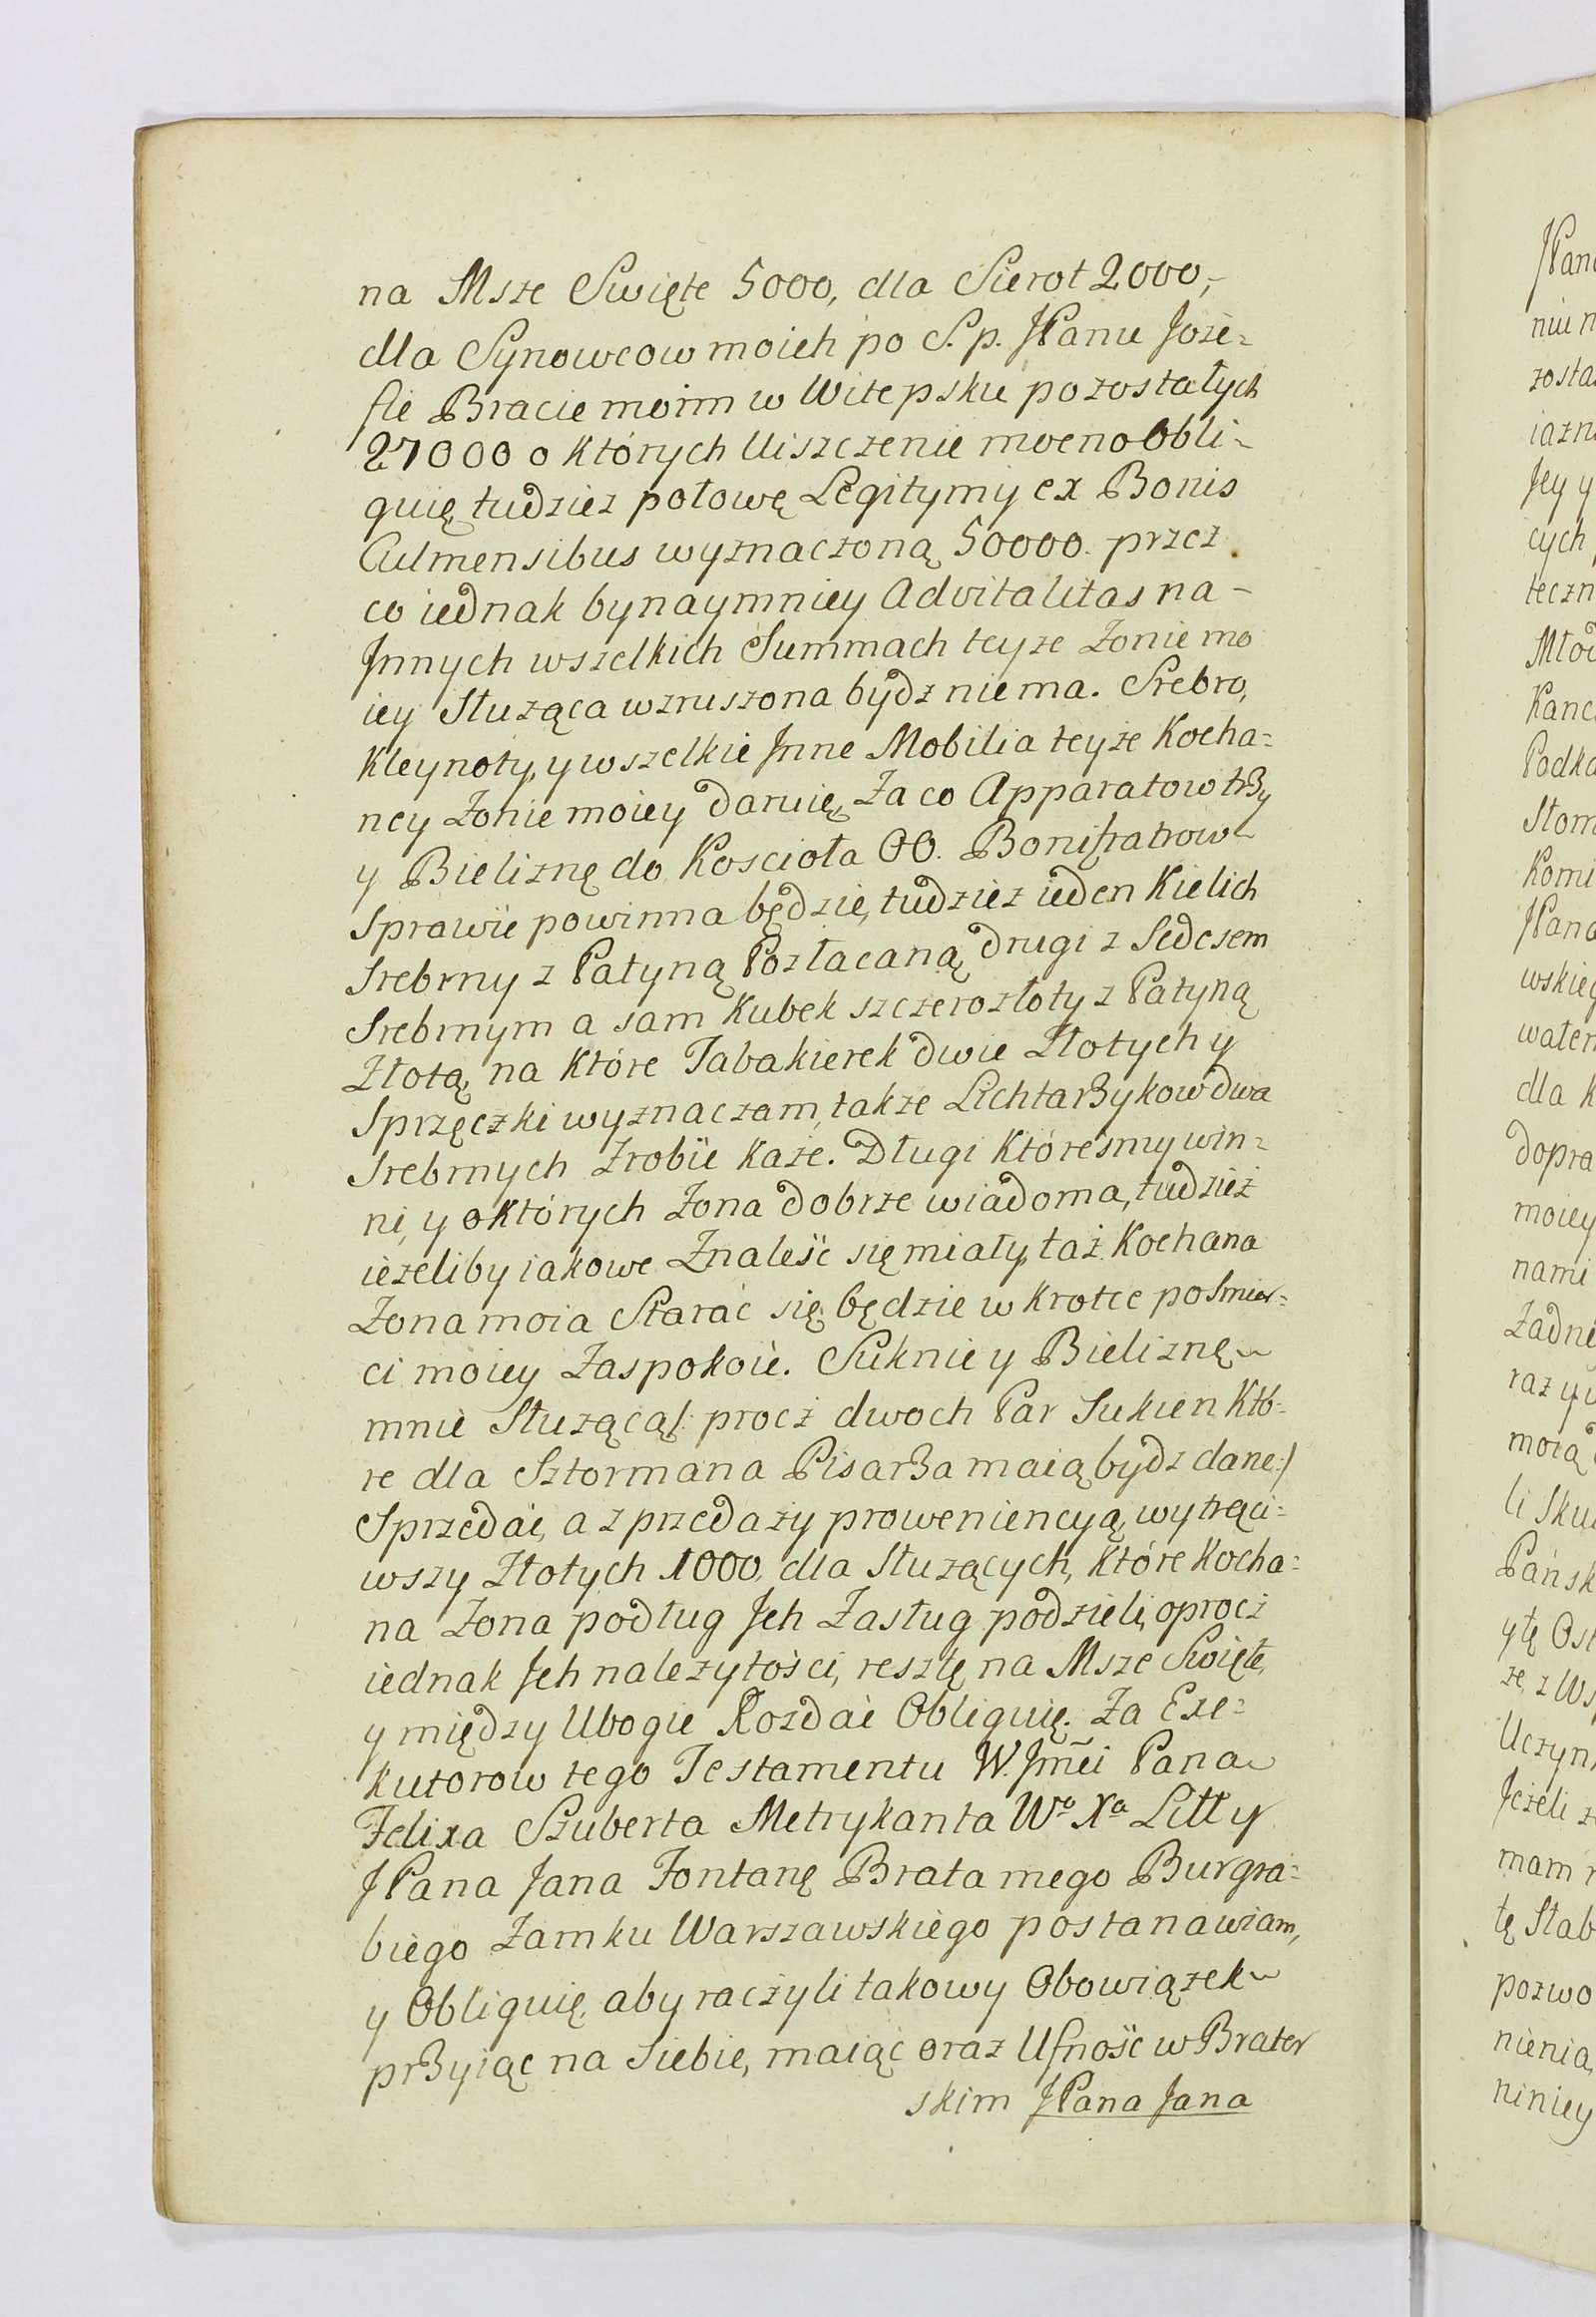 na Msze Swięte 5000, dla Sierot 2000,-
dla Synowcow moich po S. p. JPanu Joze=
fie Bracie moim w Witepsku pozostałych
27000 o których Uiszczenie mocno Obli-
guię, tudziez połowę Legitymy ex Bonis
Culmensibus wyznaczoną 50000. przez
co iednak bynaymniey Advitalitas na-
Jnnych wszelkich Summach teyze Zonie mo
iey Służąca wzruszona bydz nie ma. Srebro,
Kleynoty, y wszelkie Jnne Mobilia teyże Kocha=
ney Zonie moiey daruię, Za co Apparatow trzy
y Bieliznę do Koscioła OO. Bonifratrow
Sprawić powinna będzie, tudzież ieden Kielich
Srebrny z Patyną Pozłacaną drugi z Sedesem
Srebrnym a sam Kubek szczerozłoty z Patyną
Złotą, na Które Tabakierek dwie Złotych y
Sprzęczki wyznaczam, także Lichtarzykow dwa
Srebrnych Zrobić każe. Długi Któresmy win=
ni, y o których Zona dobrze wiadoma, tudzież
ieżeliby iakowe Znaleść się miały, taż Kochana
Zona moia Starać się będzie w krotce po Smier=
ci moiey Zaspokoić. Suknie y Bieliznę
mnie Służącą /: procz dwoch Par Sukien Któ=
re dla Sztormana Pisarza maią bydz dane :/
Sprzedać, a z przedaży proweniencyą, wytrąci=
wszy Złotych 1000, dla Służących, Które Kocha=
na Zona podług Jch Zasług podzieli, oprocz
iednak Jch należytości, resztę na Msze Swięte,
y między Ubogie Rozdać Obliguię. Za Exe=
kutorow tego Testamentu W. Jmci Pana
Felixa Szuberta Metrykanta Wº Xª Litty
JPana Jana Fontanę Brata mego Burgra=
biego Zamku Warszawskiego postanawiam,
y Obliguię, aby raczyli takowy Obowiązek
przyiąć na Siebie, maiąc oraz Ufność w Brater
skim JPana Jana
JPan
niu n
zosta
iazn
Jey y
cych
teczn
Młod
Kanc
Podko
Stom
Komi
JPana
wskieg
waler
dla K
dopra
moiey
nami
Zadne
raz y
moią
li Sku
Pańsk
y tę Ost
że, z Ws
Uczyn
Jeżeli z
mam n
tę Stab
pozwo
nienia,
niniey